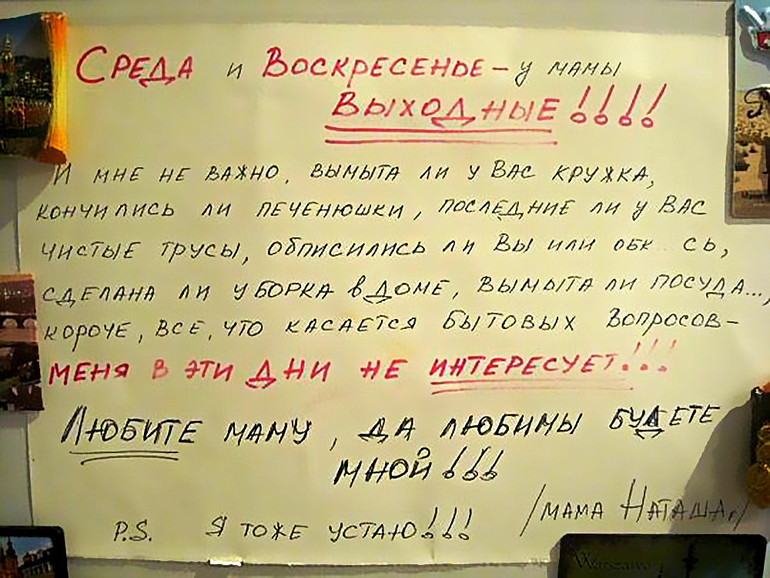 Среда и Воскресенье – у мамы
выходные!!!!
И мне не важно, вымыта ли у Вас кружка,
кончились ли печенюшки, последние ли у Вас
чистые трусы, обписились ли Вы или обк сь,
сделана ли уборка в доме, вымыта ли посуда...,
короче, все, что касается бытовых вопросов –
меня в эти дни не интересует!!!
Любите маму, да любимы будете
мной!!!
/мама Наташа/
P.S. Я тоже устаю!!!
Warszawa